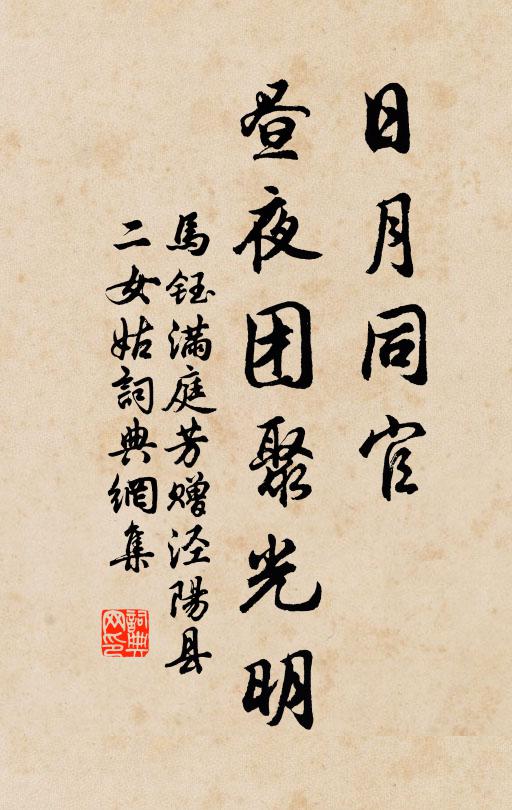 日月同官
昼夜团聚光明
馬鈺满庭芳赠泾陽县
二女姑詞典網集
詞典网印